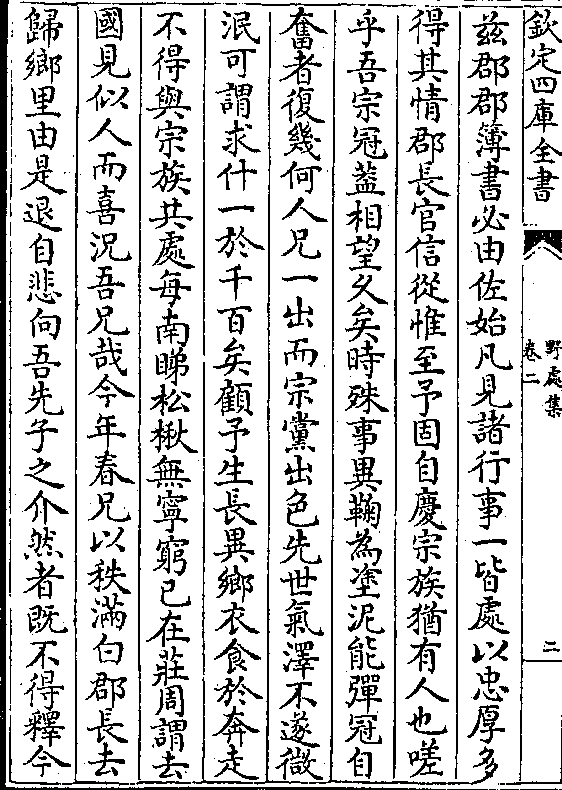 欽定四庫全書
野處集
卷二
二
茲郡郡簿書必由佐始凡見諸行事一皆處以忠厚多
得其情郡長官信從惟至予固自慶宗族猶有人也嗟
乎吾宗冠蓋相望久矣時殊事異鞠為塗泥能彈冠自
奮者復幾何人兄一出而宗黨出色先世氣澤不遂微
泯可謂求什一於千百矣顧予生長異鄉衣食於奔走
不得與宗族共處每南睇松楸無寧窮已在莊周謂去
國見似人而喜況吾兄哉今年春兄以秩滿白郡長去
歸鄉里由是退自悲向吾先子之介然者既不得釋今